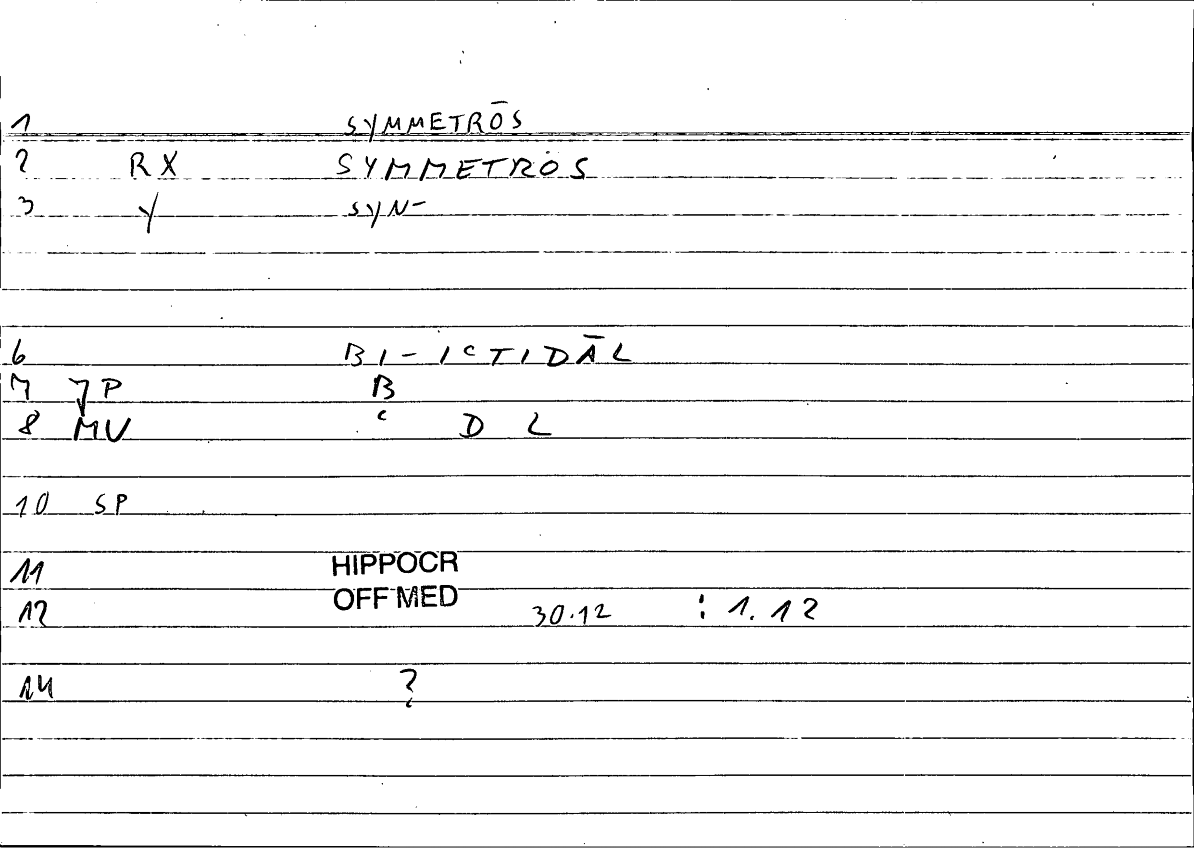 1 SYMMETRŌS
2 RX SYMMETRÓS
3 Y SYN-
6 BI-ICTIDĀL
7 7P B
8 MV C D L
10 SP
11 HIPPOCR
12 OFF MED 30.12 : 1.12
14 ?